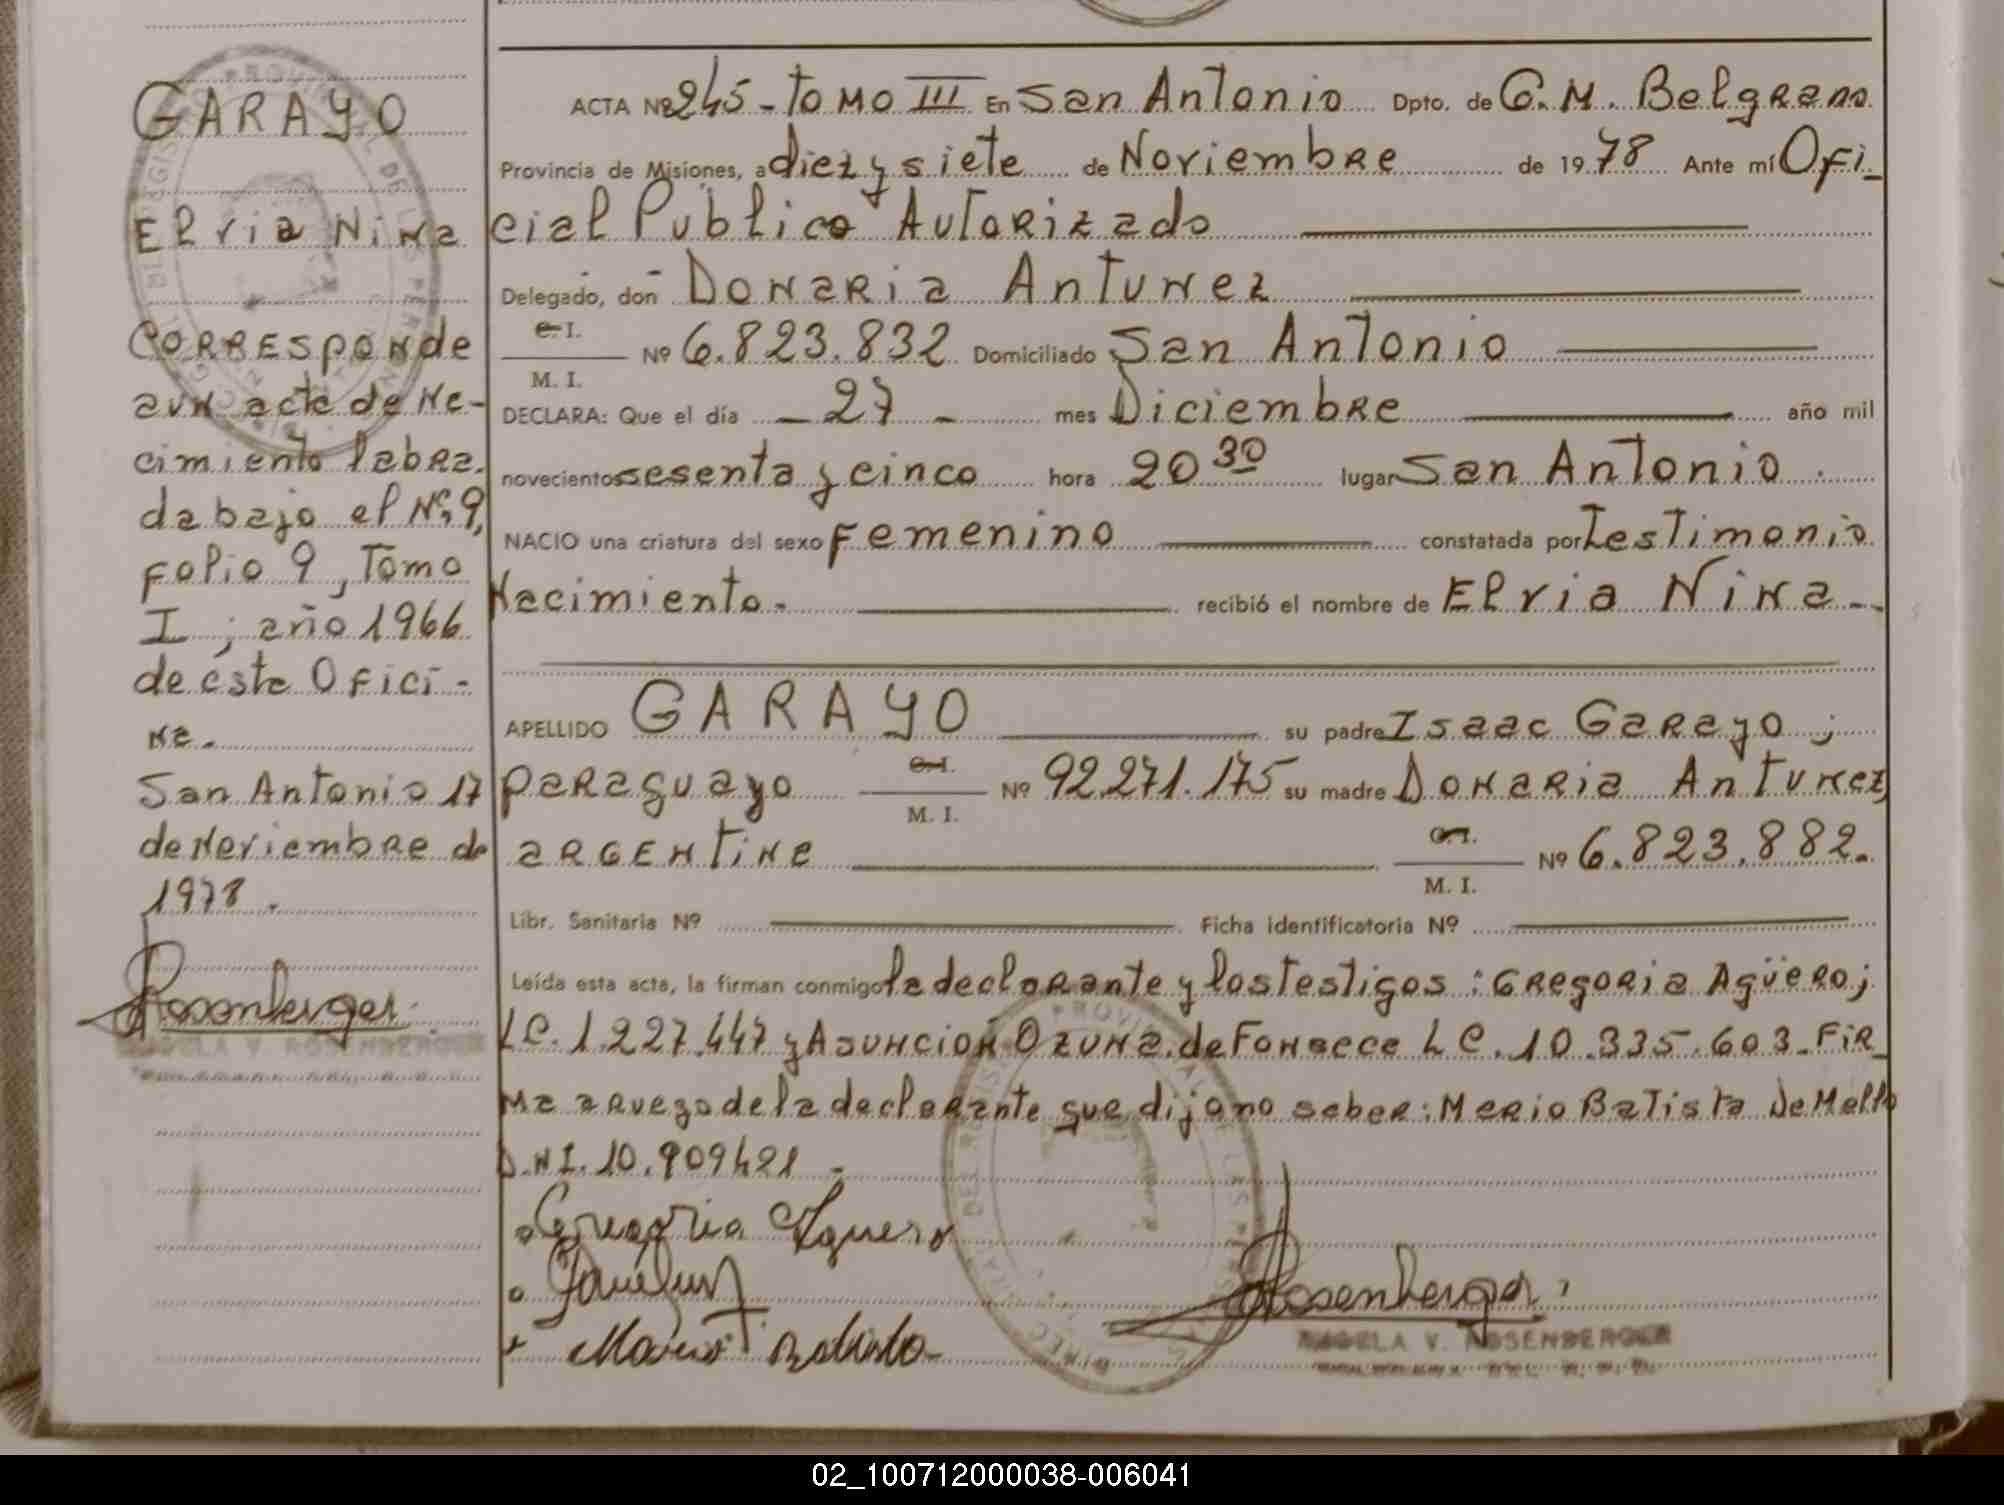 GARAYO
Elvia Nina
Corresponde
a un acta de Na-
cimiento labra-
da bajo el Nº 9,
folio 9, Tomo
I ; año 1966
de esta Ofici-
na.
San Antonio 17
de Noviembre de
1978.
Rosenberger
ANGELA V. ROSENBERGER
ACTA Nº 245 - TOMO III En San Antonio Dpto. de G. M. Belgrano
Provincia de Misiones, a diez y siete de Noviembre de 1978 Ante mí Ofi-
cial Publico Autorizado
Delegado, doñ Donaria Antunez
C. I.
M. I. Nº 6.823.832 Domiciliado San Antonio
DECLARA: Que el día - 27 - mes Diciembre año mil
novecientos sesenta y cinco hora 20 30 lugar San Antonio .
NACIO una criatura del sexo Femenino constatada por Testimonio
Nacimiento. recibió el nombre de Elvia Nina --
APELLIDO GARAYO su padre Isaac Garayo ;
paraguayo C. I. M. I. Nº 92.271.175 su madre Donaria Antunez
argentina C. I. M. I. Nº 6.823.882.
Libr. Sanitaria Nº Ficha identificatoria Nº
Leída esta acta, la firman conmigo la declarante y los testigos : Gregoria Agüero ;
LC. 1.227.447 y Asuncion Ozuna de Fonseca L C. 10.335.603 - Fir-
ma a ruego de la declarante que dijo no saber : Mario Batista De Mello
D.N.I. 10.909421 -
Gregoria Aguero
Rosenberger
ANGELA V. ROSENBERGER
02_100712000038-006041